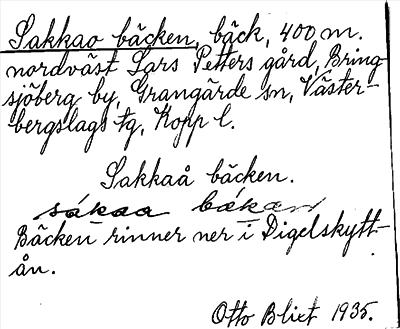 Sakkao bäcken, bäck, 400 m.
nordväst Lars Petters gård, Bring
sjöberg by, Grangärde sn, Väster-
bergslags tg, Kopp l.
Sakkaå bäcken.
sákaa bäkan
Bäcken rinner ner i Digelskytt-
ån.
Otto Blixt 1935.